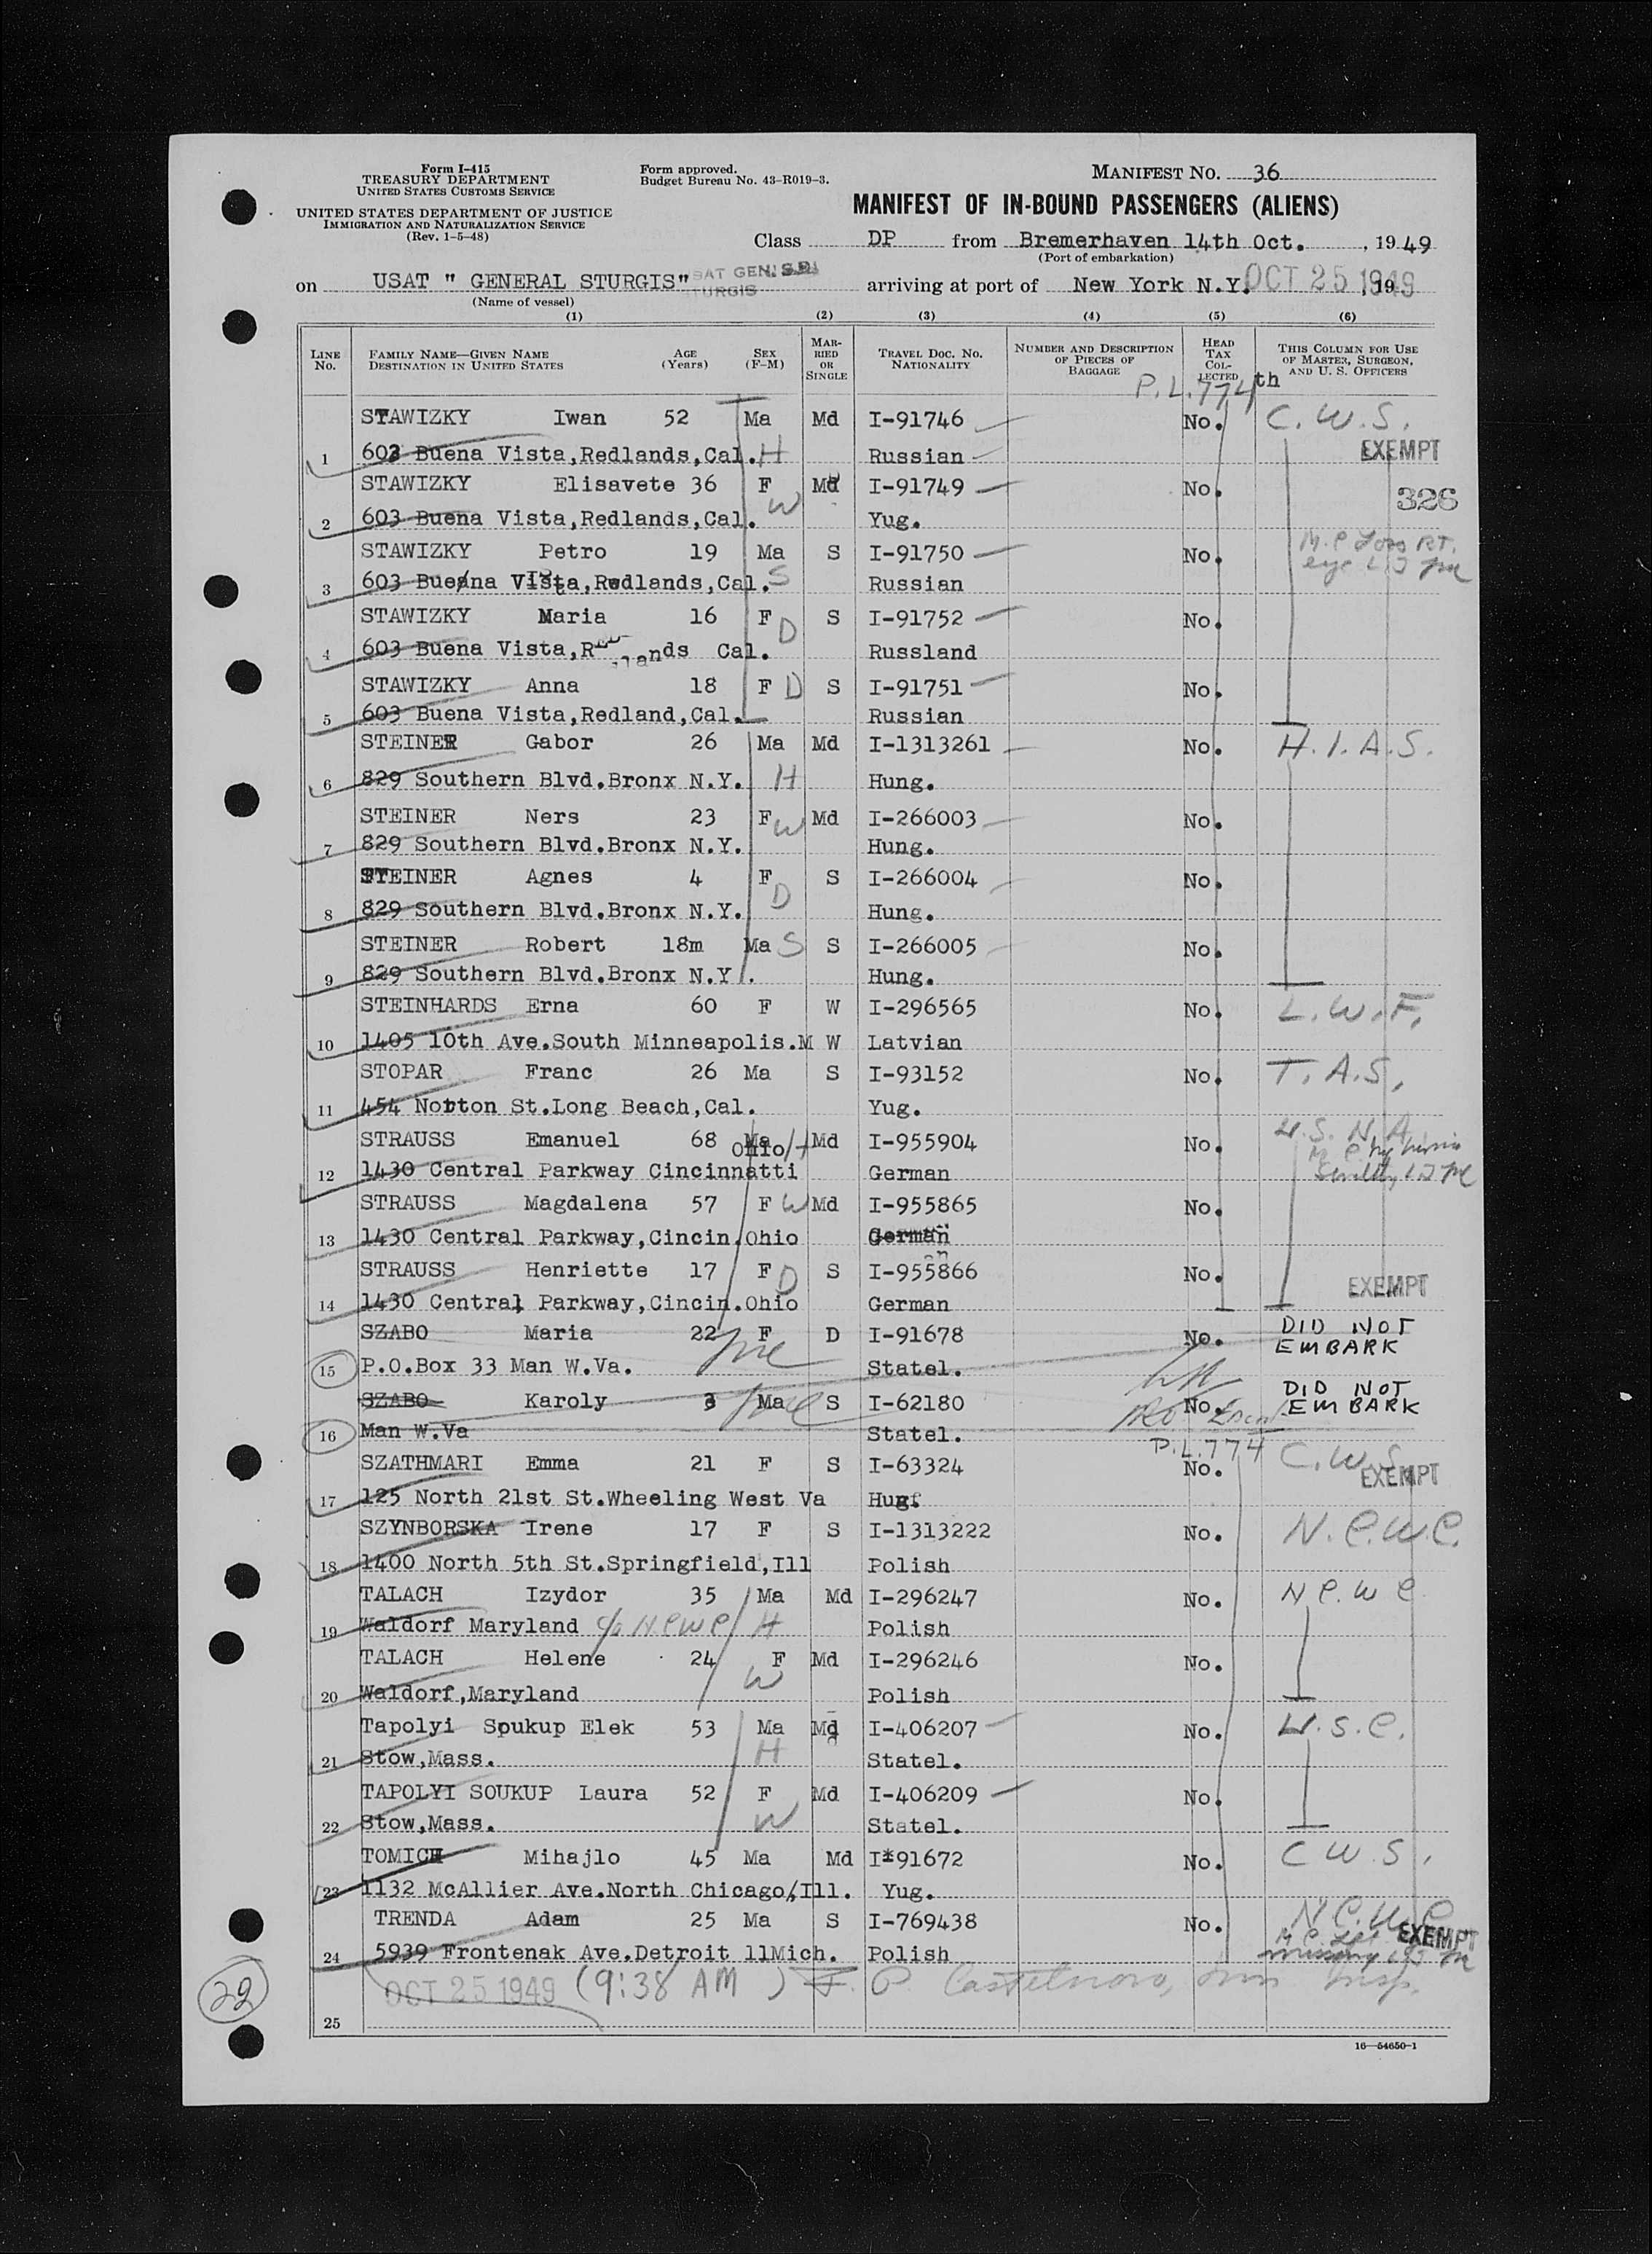 Form I-415
TREASURY DEPARTMENT
UNITED STATES CUSTOMS SERVICE
UNITED STATES DEPARTMENT OF JUSTICE
IMMIGRATION AND NATURALIZATION SERVICE
(Rev. 1-5-48)
Form approved.
Budget Bureau No. 43-R019-3.
MANIFEST NO. 36
MANIFEST OF IN-BOUND PASSENGERS (ALIENS)
Class DP from Bremerhaven 14th Oct. , 1949
(Port of embarkation)
on USAT " GENERAL STURGIS" arriving at port of New York N.Y. OCT 25 1949 , 19
(Name of vessel)
(1) (2) (3) (4) (5) (6)
LINE No. FAMILY NAME—GIVEN NAME DESTINATION IN UNITED STATES AGE (Years) SEX (F-M) MARRIED OR SINGLE TRAVEL DOC. NO. NATIONALITY NUMBER AND DESCRIPTION OF PIECES OF BAGGAGE HEAD TAX COLLECTED THIS COLUMN FOR USE OF MASTER, SURGEON, AND U. S. OFFICERS
P.L.774 th
STAWIZKY Iwan 52 Ma Md I-91746 No. C.W.S.
1 603 Buena Vista,Redlands,Cal. H Russian EXEMPT
STAWIZKY Elisavete 36 F Md I-91749 No. 326
2 603 Buena Vista,Redlands,Cal. W Yug.
STAWIZKY Petro 19 Ma S I-91750 No. M.C Loss RT.
3 603 Buena Vista,Redlands,Cal. S Russian eye
STAWIZKY Maria 16 F D S I-91752 No.
4 603 Buena Vista,Redlands Cal. Russland
STAWIZKY Anna 18 F D S I-91751 No.
5 603 Buena Vista,Redland,Cal. Russian
STEINER Gabor 26 Ma Md I-1313261 No. H.I.A.S.
6 829 Southern Blvd.Bronx N.Y. H Hung.
STEINER Ners 23 F W Md I-266003 No.
7 829 Southern Blvd.Bronx N.Y. Hung.
STEINER Agnes 4 F D S I-266004 No.
8 829 Southern Blvd.Bronx N.Y. Hung.
STEINER Robert 18m Ma S S I-266005 No.
9 829 Southern Blvd.Bronx N.Y. Hung.
STEINHARDS Erna 60 F W I-296565 No. L.W.F.
10 1405 10th Ave.South Minneapolis.M W Latvian
STOPAR Franc 26 Ma S I-93152 No. T.A.S.
11 454 Norton St.Long Beach,Cal. Yug.
STRAUSS Emanuel 68 Ma H Md I-955904 No. U.S.N.A.
12 1430 Central Parkway Cincinnatti Ohio German
STRAUSS Magdalena 57 F W Md I-955865 No.
13 1430 Central Parkway,Cincin.Ohio German
STRAUSS Henriette 17 F D S I-955866 No. EXEMPT
14 1430 Central Parkway,Cincin.Ohio German
SZABO Maria 22 F D I-91678 No. DID NOT EMBARK
15 P.O.Box 33 Man W.Va. Statel.
SZABO Karoly 3 Ma S I-62180 No. DID NOT EMBARK
16 Man W.Va Statel.
P.L.774
SZATHMARI Emma 21 F S I-63324 No. C.W.S. EXEMPT
17 125 North 21st St.Wheeling West Va Hung.
SZYNBORSKA Irene 17 F S I-1313222 No. N.C.W.C.
18 1400 North 5th St.Springfield,Ill Polish
TALACH Izydor 35 Ma Md I-296247 No. N C.W C
19 Waldorf Maryland c/o NCWC H Polish
TALACH Helene 24 F Md I-296246 No.
20 Waldorf,Maryland W Polish
Tapolyi Soukup Elek 53 Ma Md I-406207 No. U.S.C.
21 Stow,Mass. H Statel.
TAPOLYI SOUKUP Laura 52 F Md I-406209 No.
22 Stow,Mass. W Statel.
TOMICH Mihajlo 45 Ma Md I*91672 No. C W.S.
23 1132 McAllier Ave.North Chicago,Ill. Yug.
TRENDA Adam 25 Ma S I-769438 No. N.C.W.C EXEMPT
24 5939 Frontenak Ave.Detroit 11Mich. Polish missing
22 OCT 25 1949 (9:38 AM) F. P. Castelnovo, Imm Insp.
25
16—54650-1